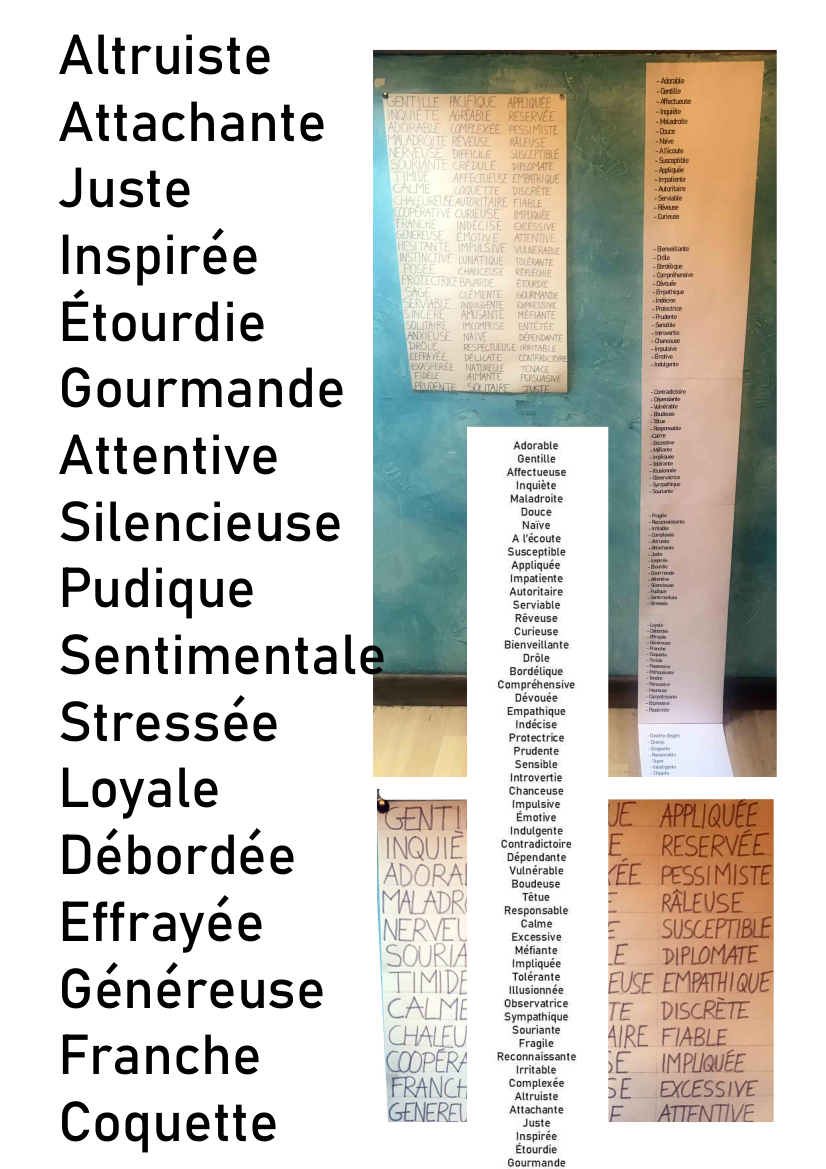 Altruiste
Attachante
Juste
Inspirée
Étourdie
Gourmande
Attentive
Silencieuse
Pudique
Sentimentale
Stressée
Loyale
Débordée
Effrayée
Généreuse
Franche
Coquette
GENTILLE PACIFIQUE APPLIQUÉE
INQUIÈTE AGRÉABLE RESERVÉE
ADORABLE COMPLEXÉE PESSIMISTE
MALADROITE RÊVEUSE RÂLEUSE
NERVEUSE DIFFICILE SUSCEPTIBLE
SOURIANTE CRÉDULE DIPLOMATE
TIMIDE AFFECTUEUSE EMPATHIQUE
CALME COQUETTE DISCRÈTE
CHALEUREUSE AUTORITAIRE FIABLE
COOPÉRATIVE CURIEUSE IMPLIQUÉE
FRANCHE INDÉCISE EXCESSIVE
GENEREUSE ÉMOTIVE ATTENTIVE
HÉSITANTE IMPULSIVE VULNÉRABLE
INSTINCTIVE LUNATIQUE TOLÉRANTE
POSÉE CHANCEUSE RÉFLÉCHIE
PROTECTRICE BAVARDE ÉTOURDIE
SAGE CLÉMENTE GOURMANDE
SERVIABLE INDULGENTE EXPRESSIVE
SINCERE AMUSANTE MÉFIANTE
SOLITAIRE INCOMPRISE ENTÊTÉE
ANXIEUSE NAÏVE DÉPENDANTE
DRÔLE RESPECTUEUSE IRRITABLE
EFFRAYÉE DÉLICATE CONTRADICTOIRE
EXASPÉRÉE NATURELLE TENACE
FIDÈLE AIMANTE PERSUASIVE
PRUDENTE SOLITAIRE JUSTE
- Adorable
- Gentille
- Affectueuse
- Inquiète
- Maladroite
- Douce
- Naïve
- A l'écoute
- Susceptible
- Appliquée
- Impatiente
- Autoritaire
- Serviable
- Rêveuse
- Curieuse
- Bienveillante
- Drôle
- Bordélique
- Compréhensive
- Dévouée
- Empathique
- Indécise
- Protectrice
- Prudente
- Sensible
- Introvertie
- Chanceuse
- Impulsive
- Émotive
- Indulgente
- Contradictoire
- Dépendante
- Vulnérable
- Boudeuse
- Têtue
- Responsable
- Calme
- Excessive
- Méfiante
- Impliquée
- Tolérante
- Illusionnée
- Observatrice
- Sympathique
- Souriante
- Fragile
- Reconnaissante
- Irritable
- Complexée
- Altruiste
- Attachante
- Juste
- Inspirée
- Étourdie
- Gourmande
- Attentive
- Silencieuse
- Pudique
- Sentimentale
- Stressée
- Loyale
- Débordée
- Effrayée
- Généreuse
- Franche
- Coquette
- Timide
- Possessive
- Enthousiaste
- Tendre
- Persuasive
- Heureuse
- Compatissante
- Expressive
- Ouverte d'esprit
- Directe
- Exigeante
- Raisonnable
- Super
- Intelligente
Adorable
Gentille
Affectueuse
Inquiète
Maladroite
Douce
Naïve
A l'écoute
Susceptible
Appliquée
Impatiente
Autoritaire
Serviable
Rêveuse
Curieuse
Bienveillante
Drôle
Bordélique
Compréhensive
Dévouée
Empathique
Indécise
Protectrice
Prudente
Sensible
Introvertie
Chanceuse
Impulsive
Émotive
Indulgente
Contradictoire
Dépendante
Vulnérable
Boudeuse
Têtue
Responsable
Calme
Excessive
Méfiante
Impliquée
Tolérante
Illusionnée
Observatrice
Sympathique
Souriante
Fragile
Reconnaissante
Irritable
Complexée
Altruiste
Attachante
Juste
Inspirée
Étourdie
Gourmande
GENTI
INQUIÈ
ADORA
MALADR
NERVEU
SOURIA
TIMIDE
CALME
CHALEU
COOPÉRA
FRANCH
GENEREU
UE APPLIQUÉE
E RESERVÉE
ÉE PESSIMISTE
E RÂLEUSE
E SUSCEPTIBLE
LE DIPLOMATE
EUSE EMPATHIQUE
TE DISCRÈTE
AIRE FIABLE
SE IMPLIQUÉE
SE EXCESSIVE
E ATTENTIVE